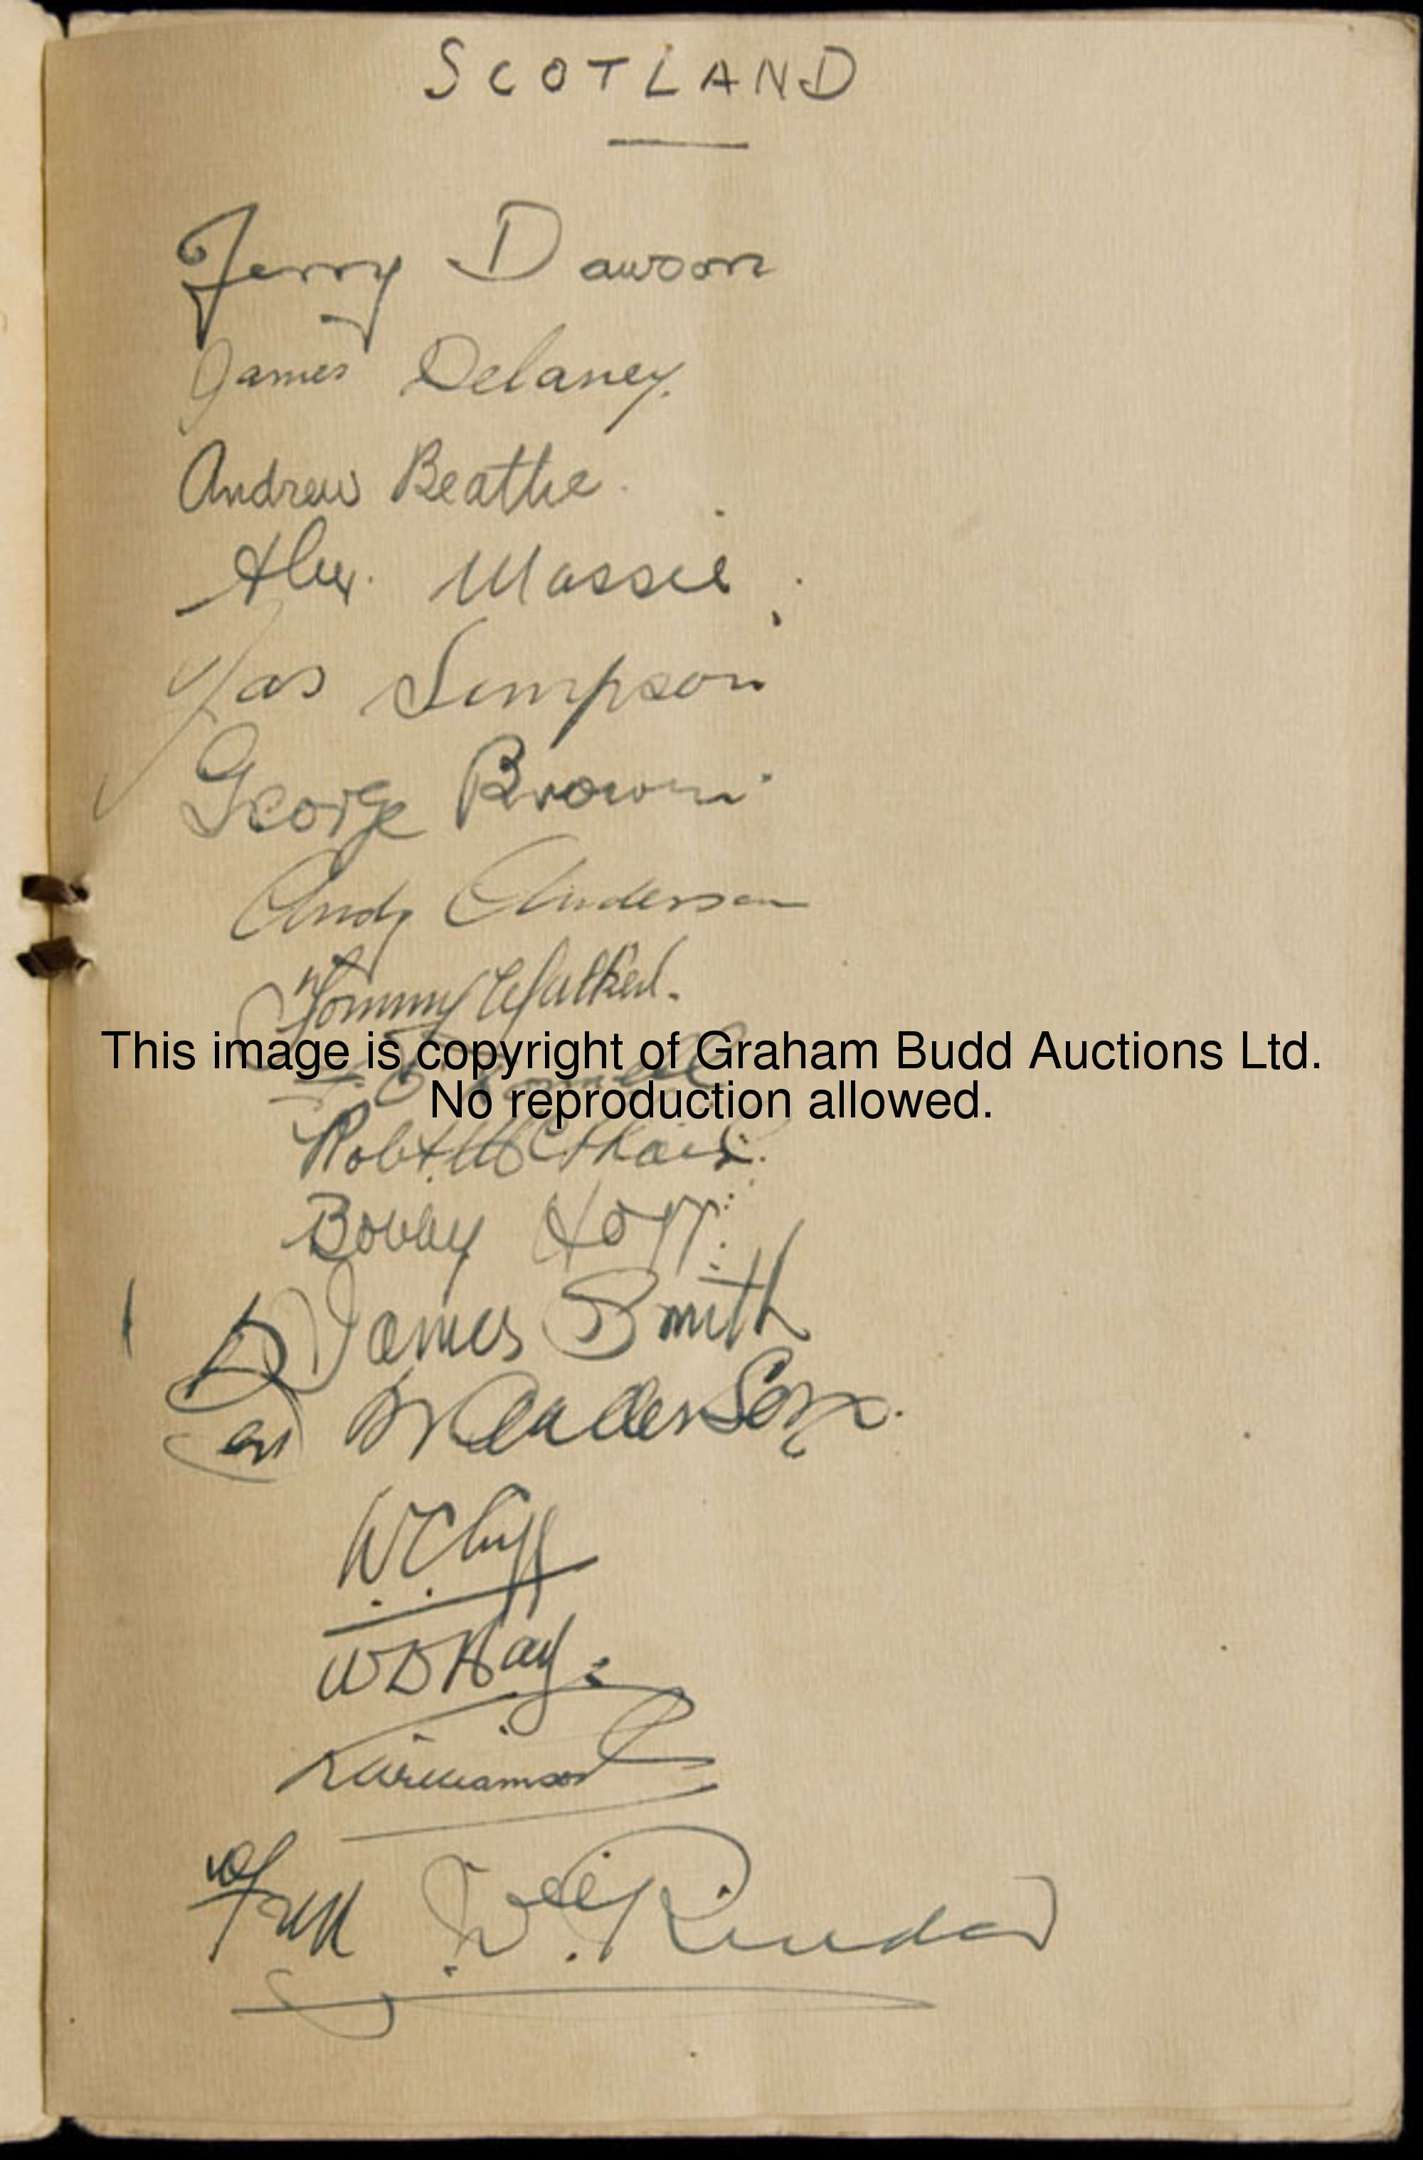 SCOTLAND
Jerry Dawson
James Delaney.
Andrew Beattie.
Alex. Massie.
Jas Simpson
George Brown.
Andy Anderson
Tommy Walker.
This image is copyright of Graham Budd Auctions Ltd.
No reproduction allowed.
Robt. McPhail.
Bobby Hogg.
James Smith
W D Hay.
Williamson